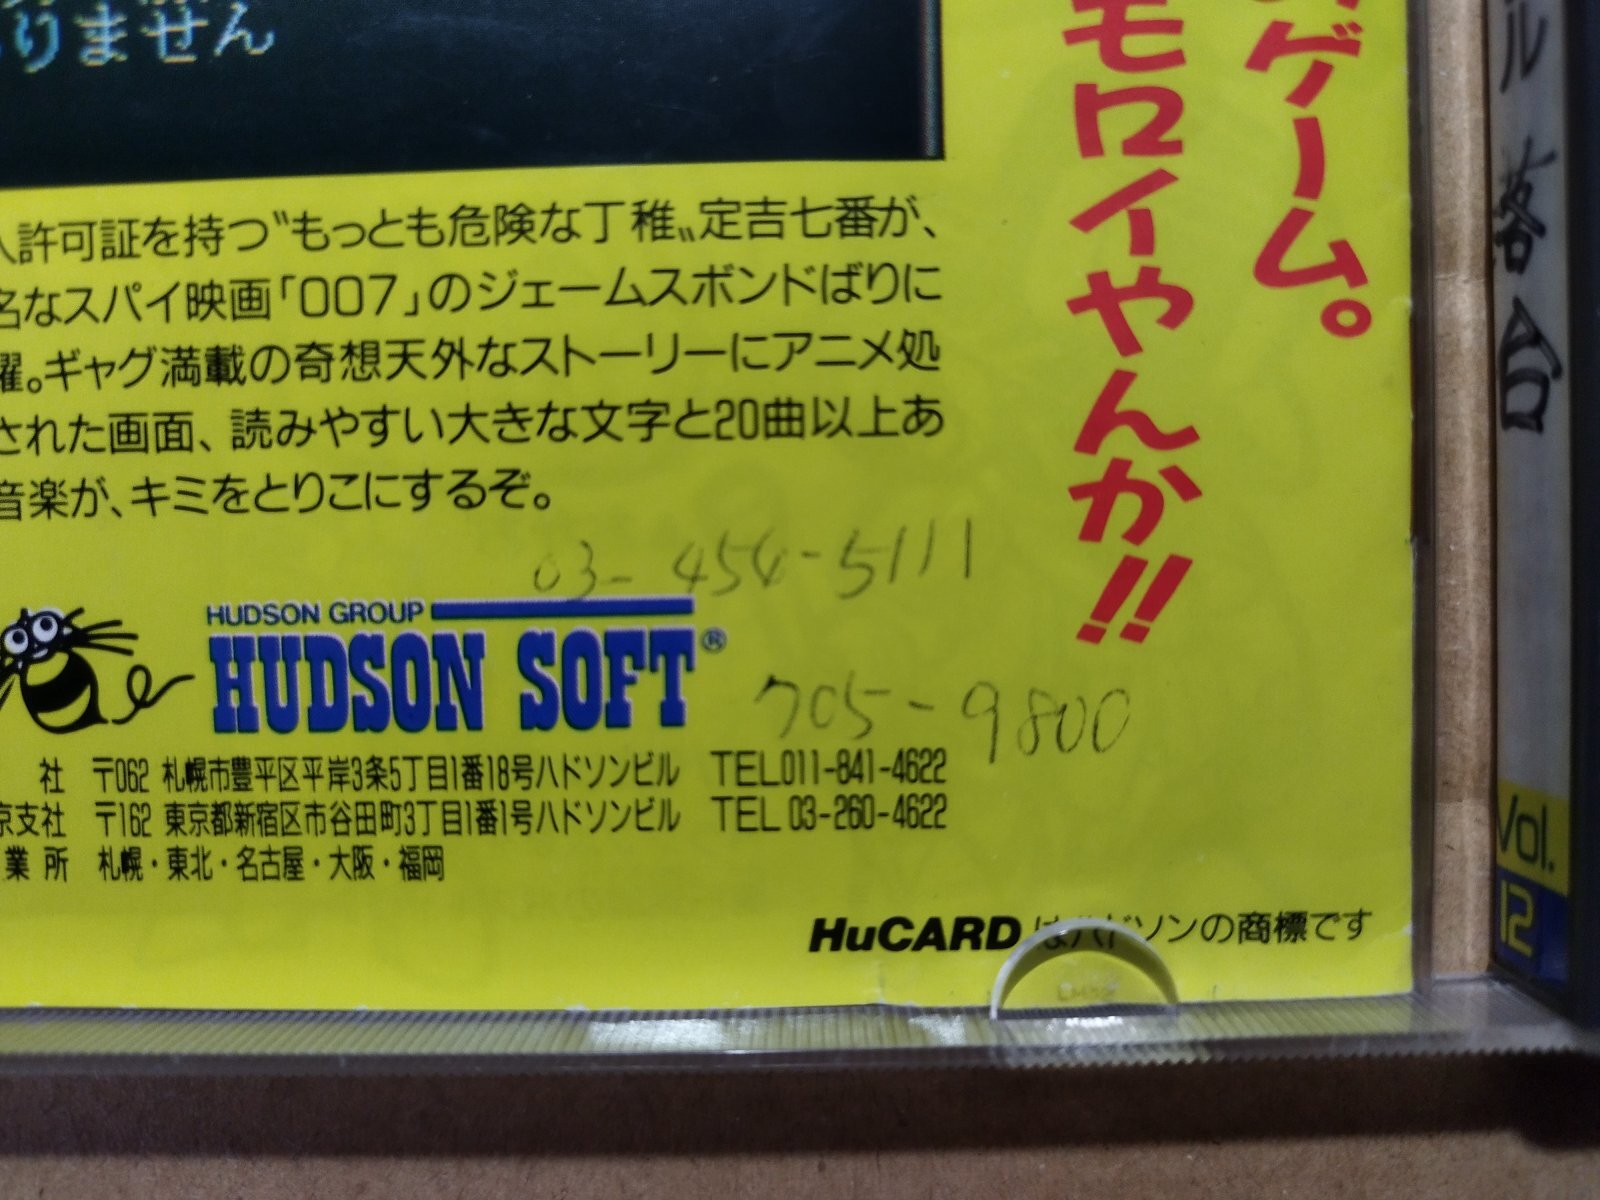 りません
ゲーム。
モロイやんか!!
許可証を持つ〝もっとも危険な丁稚〟定吉七番が、
名なスパイ映画「007」のジェームスボンドばりに
躍。ギャグ満載の奇想天外なストーリーにアニメ処
された画面、読みやすい大きな文字と20曲以上あ
音楽が、キミをとりこにするぞ。
03-454-5111
HUDSON GROUP
HUDSON SOFT®
705-9800
社 〒062 札幌市豊平区平岸3条5丁目1番18号ハドソンビル TEL.011-841-4622
京支社 〒162 東京都新宿区市谷田町3丁目1番1号ハドソンビル TEL 03-260-4622
業所 札幌・東北・名古屋・大阪・福岡
HuCARDはハドソンの商標です
ル落合
Vol.
12